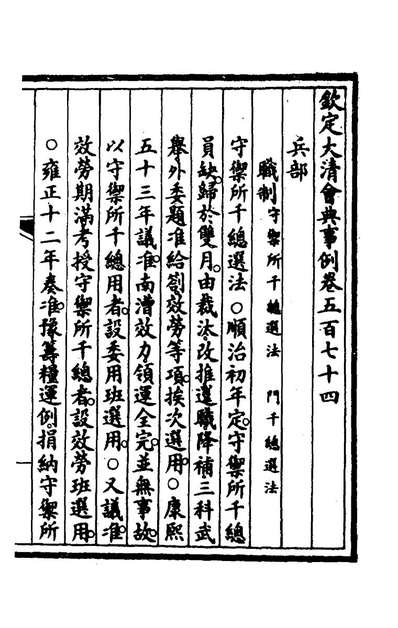 欽定大清會典事例卷五百七十四
兵部
職制守禦所千總選法　門千總選法
守禦所千總選法○順治初年定守禦所千總
員缺歸於雙月由裁汰改推遣職降補三科武
舉外委題准給劄效勞等項挨次選用○康熙
五十三年議准南漕效力領運全完並無事故
以守禦所千總用者設委用班選用○又議准
效勞期滿考授守禦所千總者設效勞班選用
○雍正十二年奏准豫籌糧運例捐納守禦所